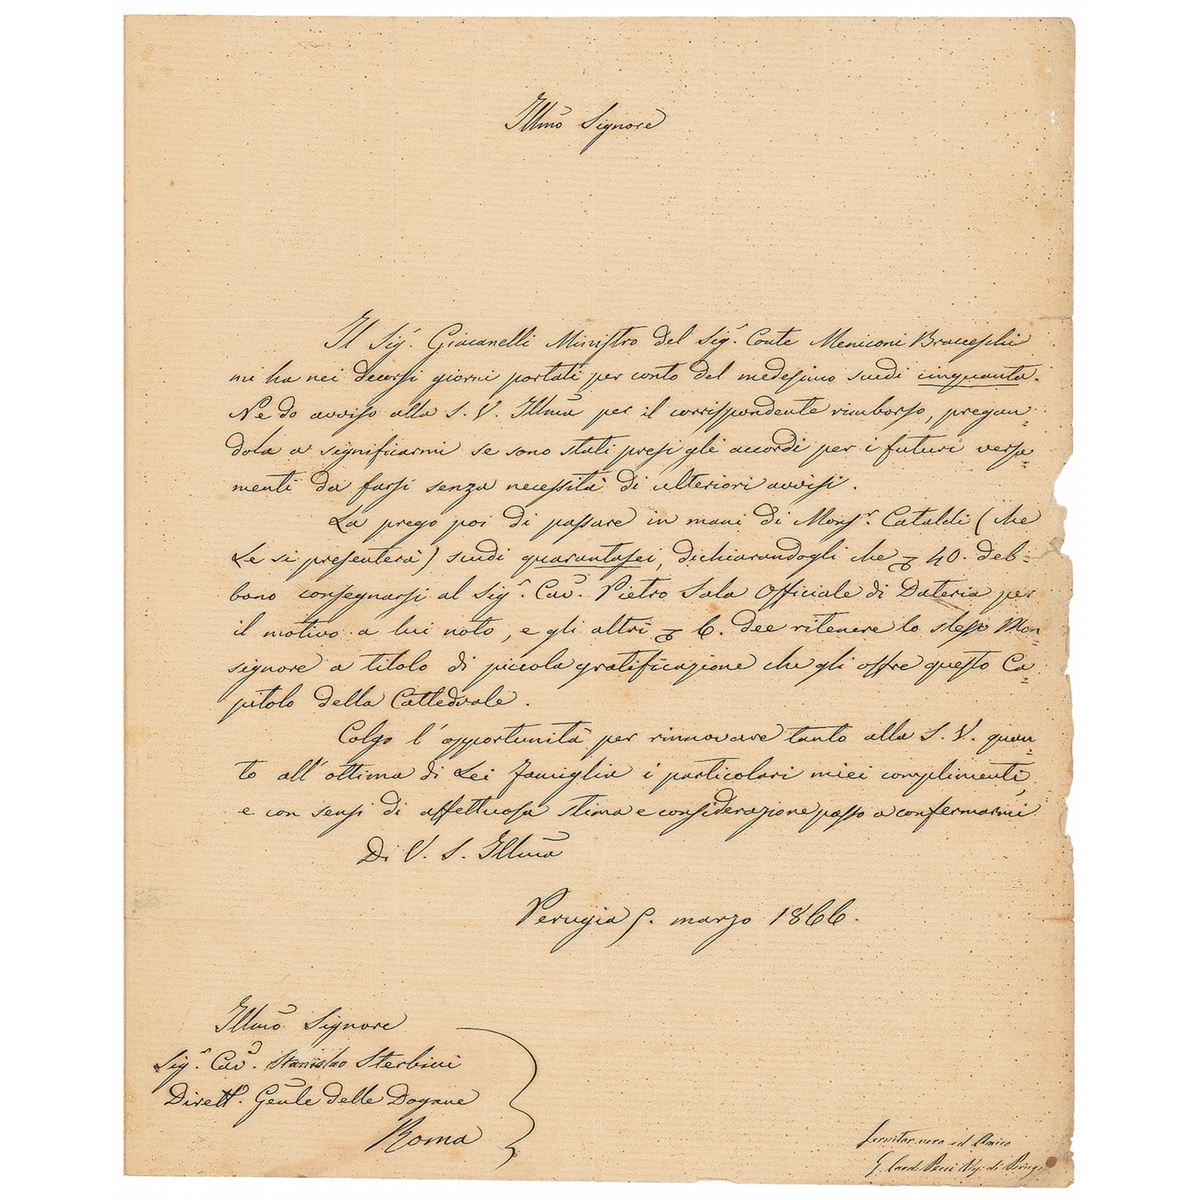 Illmo Signore
Il Sigr. Giacanelli Ministro del Sigr. Conte Meniconi Bracceschi
mi ha nei decorsi giorni portati per conto del medesimo scudi cinquanta.
Ne do avviso alla S. V. Illma per il corrispondente rimborso, pregan=
dola a significarmi se sono stati presi gli accordi per i futuri versa=
menti da farsi senza necessità di ulteriori avvisi.
La prego poi di passare in mani di Monsr. Cataldi (che
Le si presenterà) scudi quarantasei, dichiarandogli che 40. deb=
bano consegnarsi al Sigr. Cav. Pietro Sala Officiale di Dateria per
il motivo a lui noto, e gli altri 6. dee ritenere lo stesso Mon=
signore a titolo di piccola gratificazione che gli offre questo Ca=
pitolo della Cattedrale.
Colgo l'opportunità per rinnovare tanto alla S. V. quan=
to all'ottima di Lei famiglia i particolari miei complimenti
e con sensi di affettuosa stima e considerazione passo a confermarmi
Di V. S. Illma
Perugia 5. marzo 1866.
Illmo Signore
Sigr. Cav. Stanislao Sterbini
Dirett. Genle delle Dogane
Roma
servitor vero ed Amico
G. Card. Pecci Vesc. di Perugia